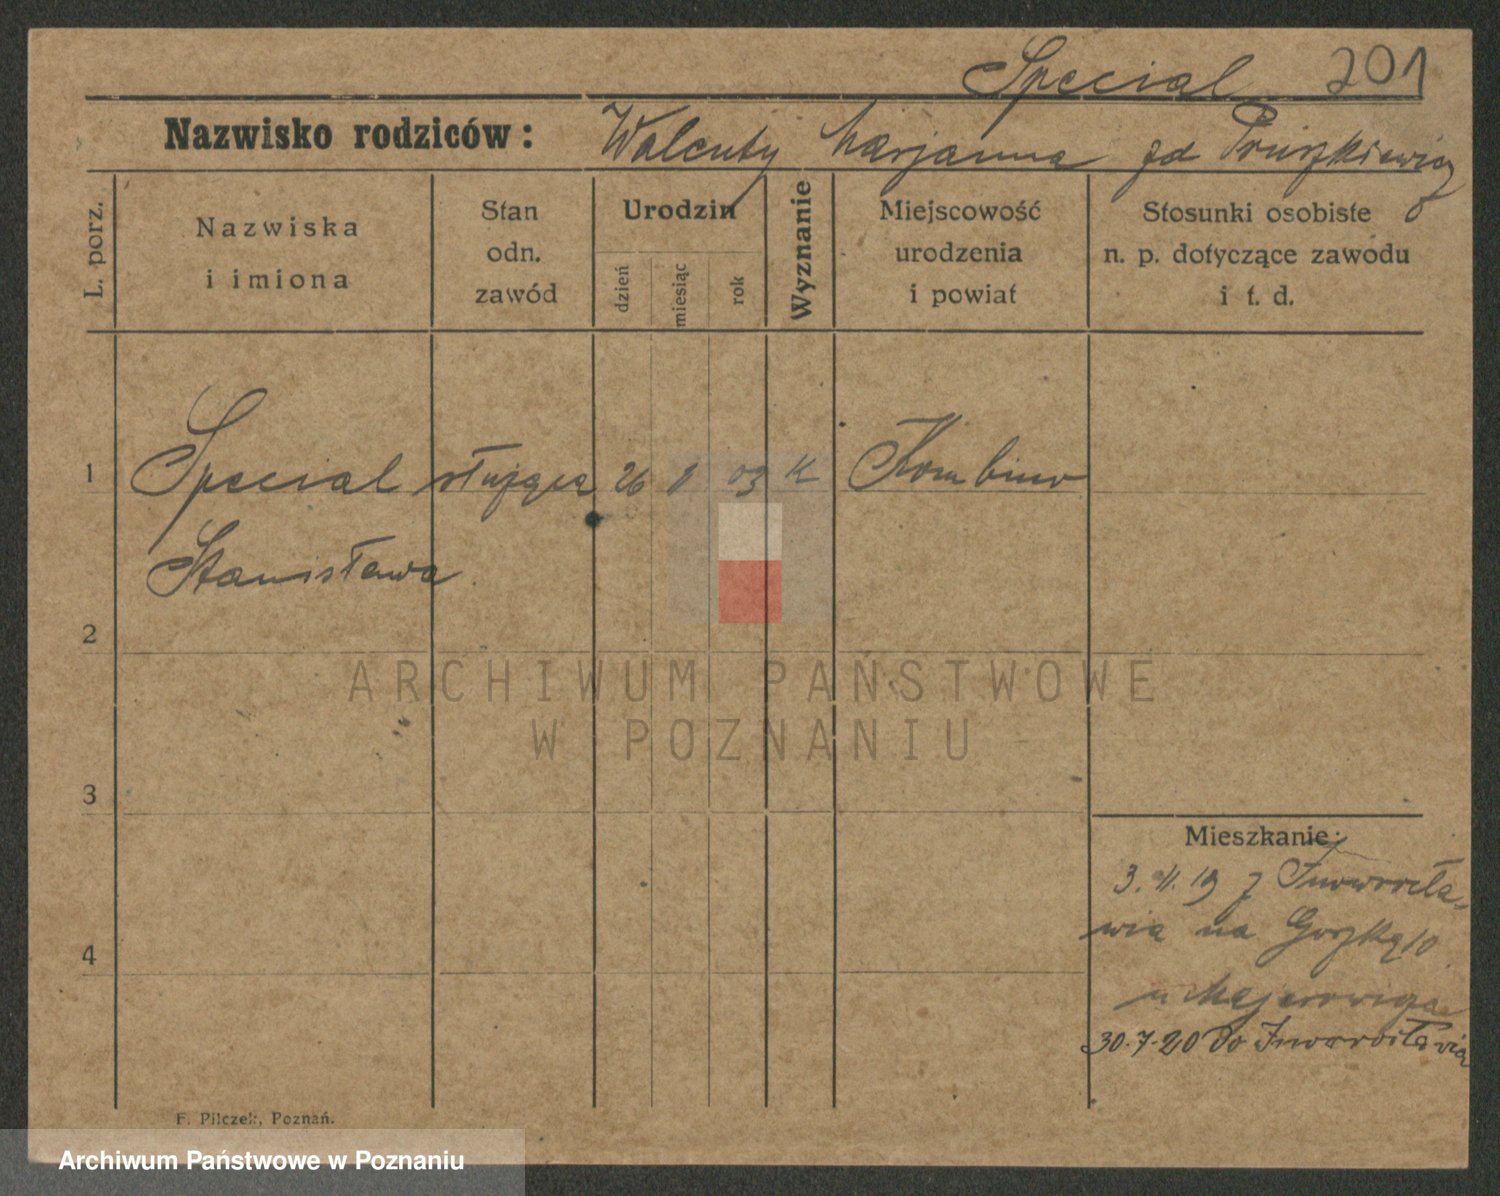 Special 201
Nazwisko rodziców: Walenty Marjanna zd Pruszkiewicz
L. porz.
Nazwiska
i imiona
Stan
odn.
zawód
Urodzin
dzień
miesiąc
rok
Wyznanie
Miejscowość
urodzenia
i powiat
Stosunki osobiste
n. p. dotyczące zawodu
i t. d.
1 Special służąca 26 8 03 K
Stanisława
2
3
4
Mieszkanie:
3. 19 z Inowrocła-
wia na 10
u
30.7.20 do Inowrocławia
F. Pilczek, Poznań.
ARCHIWUM PAŃSTWOWE
W POZNANIU
Archiwum Państwowe w Poznaniu